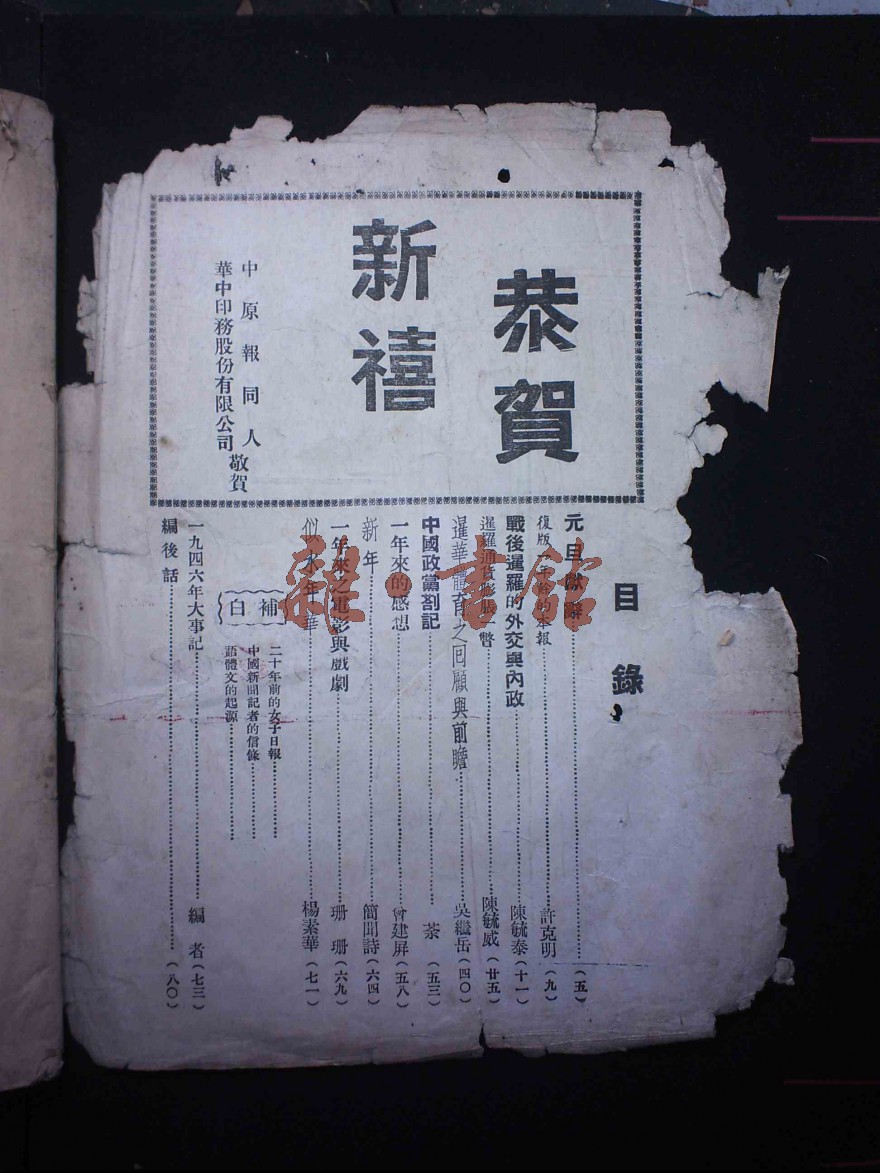 恭賀
新禧
中原報同人
華中印務股份有限公司
敬賀
目錄
元旦獻辭……(五)
復版一年餘的本報……許克明(九)
戰後暹羅的外交與內政……陳毓泰(十一)
暹羅通貨膨脹一瞥……陳毓威(廿五)
暹華體育之回顧與前瞻……吳繼岳(四〇)
中國政黨剳記……茶(五三)
一年來的感想……曾建屏(五八)
新年……簡聞詩(六四)
一年來之電影與戲劇……珊珊(六九)
似水年華……楊素華(七一)
補白
二十年前的女子日報……
中國新聞記者的信條……
語體文的起源……
一九四六年大事記……編者(七三)
編後話……(八〇)
雜·書館